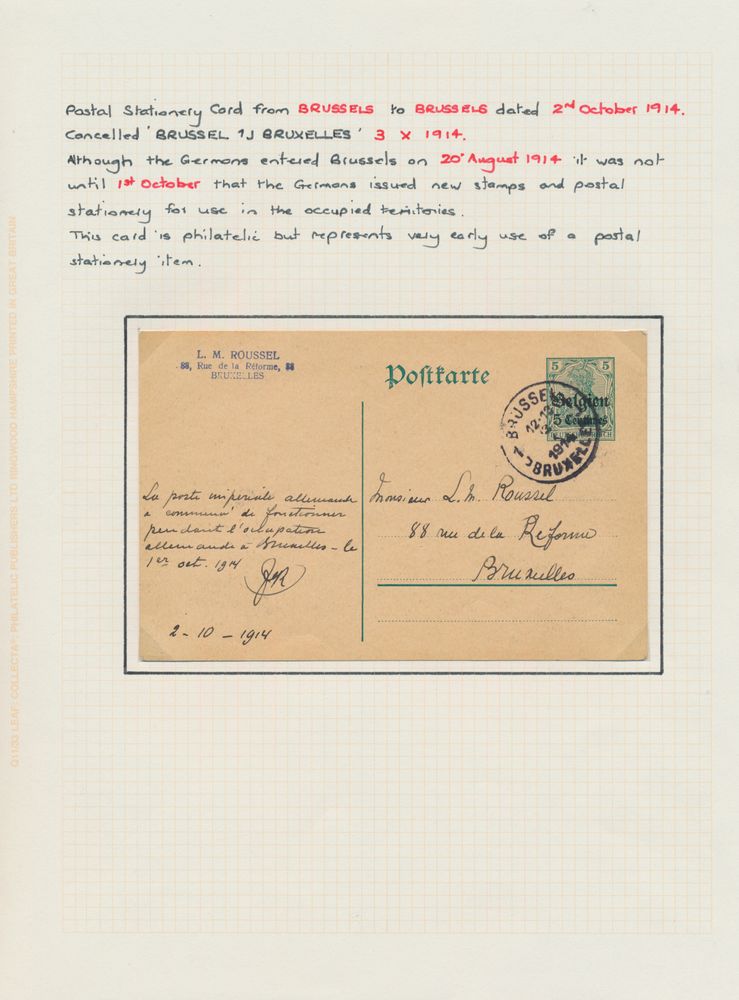 Postal Stationery Card from BRUSSELS to BRUSSELS dated 2nd October 1914.
Cancelled 'BRUSSEL 1J BRUXELLES' 3 X 1914.
Although the Germans entered Brussels on 20 August 1914 it was not
until 1st October that the Germans issued new stamps and postal
stationery for use in the occupied territories.
This card is philatelic but represents very early use of a postal
stationery item.
L. M. ROUSSEL
88, Rue de la Réforme, 88
BRUXELLES
Postkarte
5 5
Belgien
5 Centimes
BRUSSEL
1914
BRUXELLES
La poste impériale allemande
a commencé de fonctionner
pendant l'occupation
allemande à Bruxelles - le
1er oct. 1914
2 - 10 - 1914
Monsieur L. M. Roussel
88 rue de la Réforme
Bruxelles
Q11/33 LEAF. COLLECTA PHILATELIC PUBLISHERS LTD RINGWOOD HAMPSHIRE PRINTED IN GREAT BRITAIN